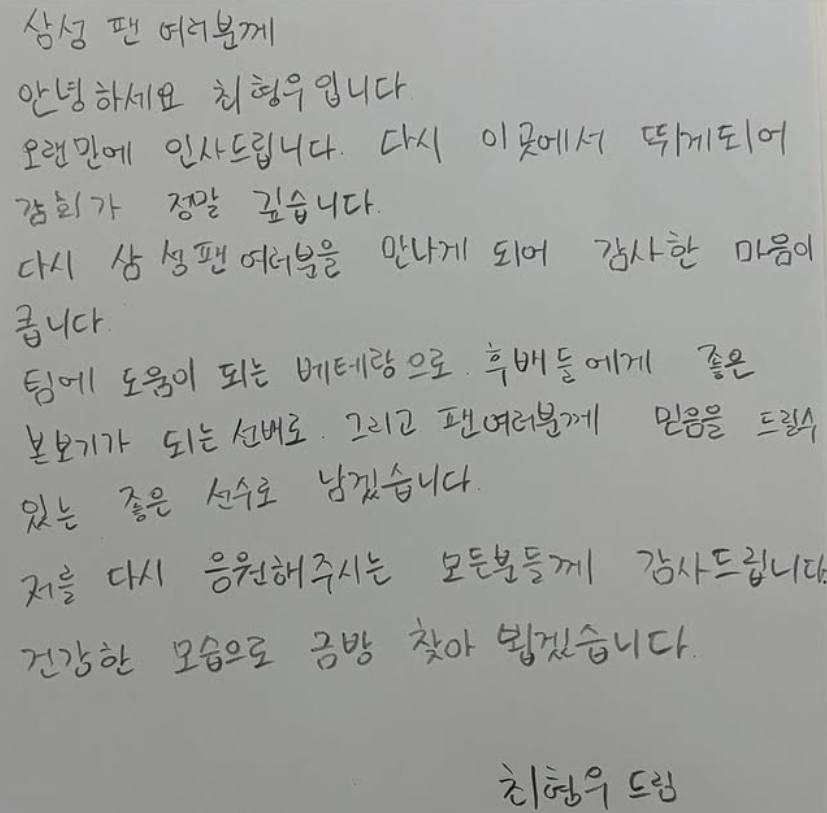 삼성 팬 여러분께
안녕하세요 최형우입니다
오랜만에 인사드립니다. 다시 이곳에서 뛰게되어
감회가 정말 깊습니다.
다시 삼성팬여러분을 만나게 되어 감사한 마음이
큽니다.
팀에 도움이 되는 베테랑으로. 후배들에게 좋은
본보기가 되는선배로. 그리고 팬여러분께 믿음을 드릴수
있는 좋은 선수로 남겠습니다.
저를 다시 응원해주시는 모든분들께 감사드립니다.
건강한 모습으로 금방 찾아 뵙겠습니다.
최형우 드림